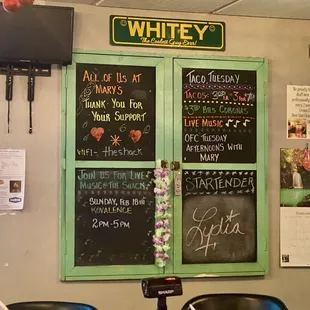 WHITEY
The Coolest Guy Ever!
ALL OF US AT
MARYS
THANK YOU FOR
YOUR SUPPORT
WIFI - theshack
JOIN US FOR LIVE
MUSIC @ THE SHACK
SUNDAY, FEB 18TH
KOVALENCE
2PM-5PM
TACO TUESDAY
TACOS
3RD
BKS CORONAS
LIVE MUSIC
OFC TUESDAY
AFTERNOONS WITH
MARY
STARTENDER
Lydia
SHARP